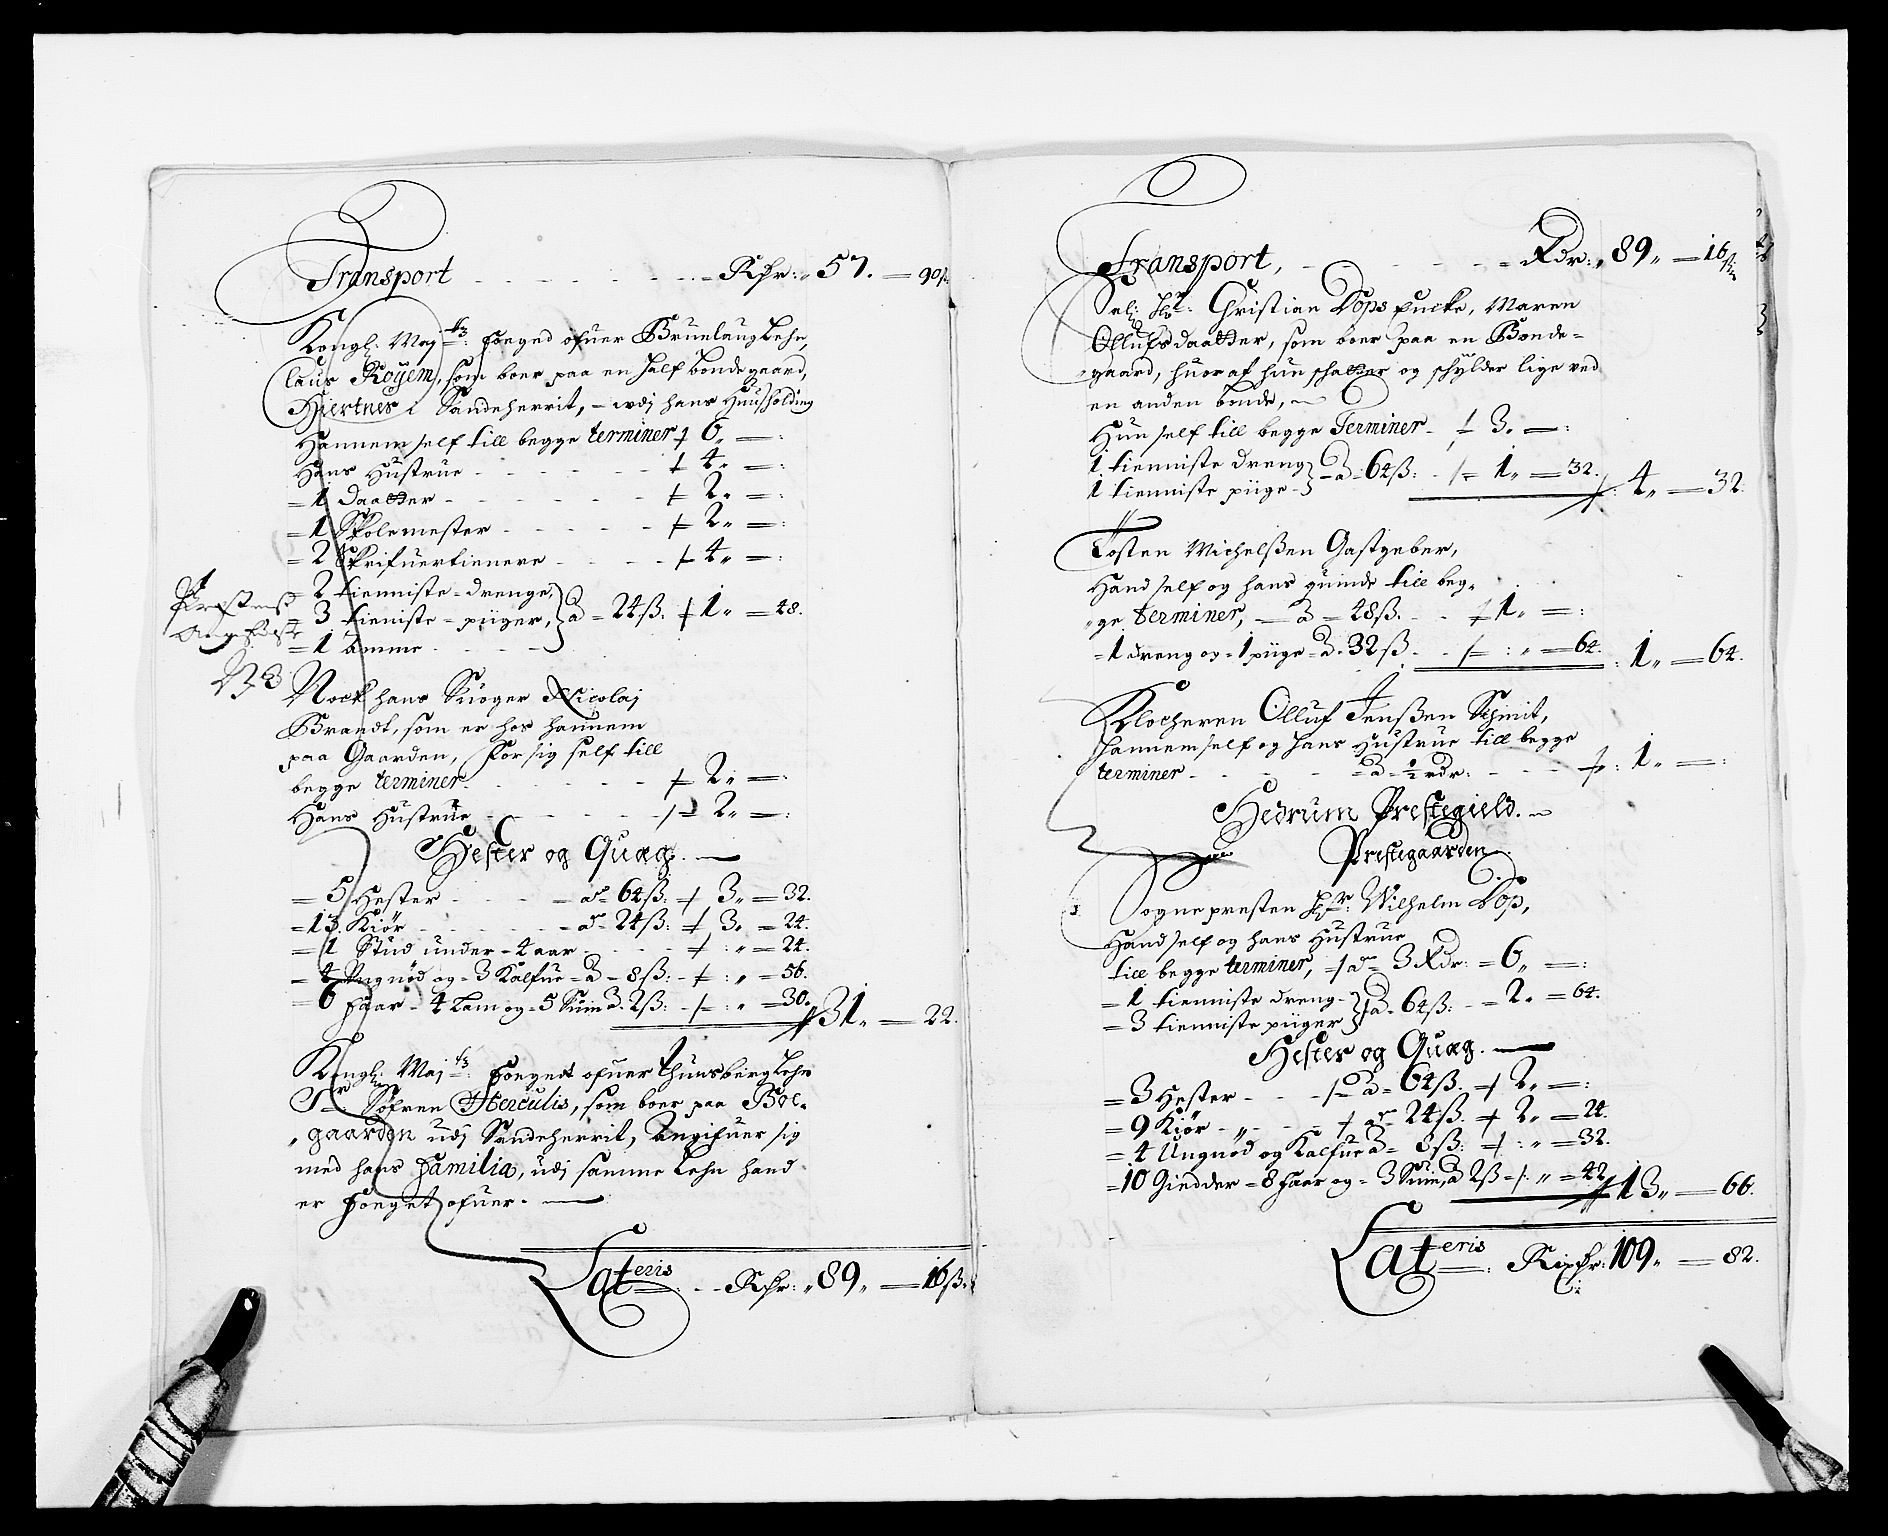 Transport - - - - - - - Rhr: „ 57. = 90ß
Kongl: Maj ts: Foeged ofuer Brunlaug Lehn,
Claus Röyem, som boer paa en half bonde gaard,
Hiertnes i Sandeherrit, - udj hans Huusholding
Hannem self till begge terminer / 6„ = :
Hans Hustrue - - - - - / 4„ = :
= 1 daatter - - - - - / 2„ = :
= 1 Skolemester - - - - / 2„ = :
= 2 Skrifuertienere - - - / 4„ = :
= 2 tienniste - drenge,
3 tieniste - piiger, } a = 24ß: / 1„ = 48.
= 1 amme - - - -
NB
Nock hans Suoger Nicolaj
Brandt, som er hos hannem
paa Gaarden, for sig self till
begge terminer. - - - - / 2„ = :
Hans Hustrue - - - - - / 2„ = :
Hester og Quæg. —
= 5 Hester - - - - a = 64ß: / 3„ = 32.
= 13. Kiör - - - - - a = 24ß: / 3„ = 24.
= 1 Stud under = 4 aar - - - / : „ = 24.
= 4 Ungnöd og = 3 Kalfue = a = 8ß: - / : „ = 56.
= 6 faar = 4 Lam og = 5 Suin a 2ß: - / : „ = 30. / 31„ = 22.
Kongl: Maj ts: Foeget ofuer Thunsberg Lehn
Sr Söfren Herculis, som boer paa Böe-
„gaarden udj Sandeherrit, Angifuer sig
med hans Familia, udj samme Lehn hand
er Foeget ofuer. —
Lateris - - Rhr: „ 89„ = 16ß:
Transport, - - - - - - Rdr: „ 89„ = 16ß
Sal: Hr: Christian Dops Encke, Maren
Ollufsdaatter, som boer paa en Bonde-
„gaard, huoraf hun schatter og schylder lige ved
en anden bonde, ~
Hun self till begge Terminer - / 3„ = :
1 tienniste dreng
1 tienniste piige - } a = 64ß: - / = 1„ = 32. / : 4„ = 32.
Tosten Michelßen Gastgeber,
Hand self og hans quinde till beg-
„ge terminer, — a = 48ß. - - / 1„ = :
= 1 dreng og = 1 piige = a = 32ß - - / = : „ = 64. : 1„ = 64.
Klocheren Olluf Jenßen Schmit,
Hannem self og hans Hustrue till begge
terminer - - - - = a = ½ rdr: - - - / : 1„ = :
Hedrum Prestegield. ~
Prestegaarden.
Sognepresten Hr: Wilhelm Dop,
Hand self og hans Hustrue
till begge terminer, = / a = 3 Rdr: = 6„ = :
= 1 tienniste dreng -
= 3 tienniste piiger } a = 64ß: - = 2„ = 64.
Hester og Quæg. —
= 3 Hester - - - / = a = 64ß. / 2„ = :
= 9 Kiör - „ - - - / a = 24ß. / 2„ = 24.
= 4 Ungnöd og Kalfue a = 8ß: / : „ = 32.
= 10 Giedder = 8 faar og = 3 Suin, a 2ß = / : „ = 42 / 13„ = 66.
Lateris Rixhr: 109„ = 82.